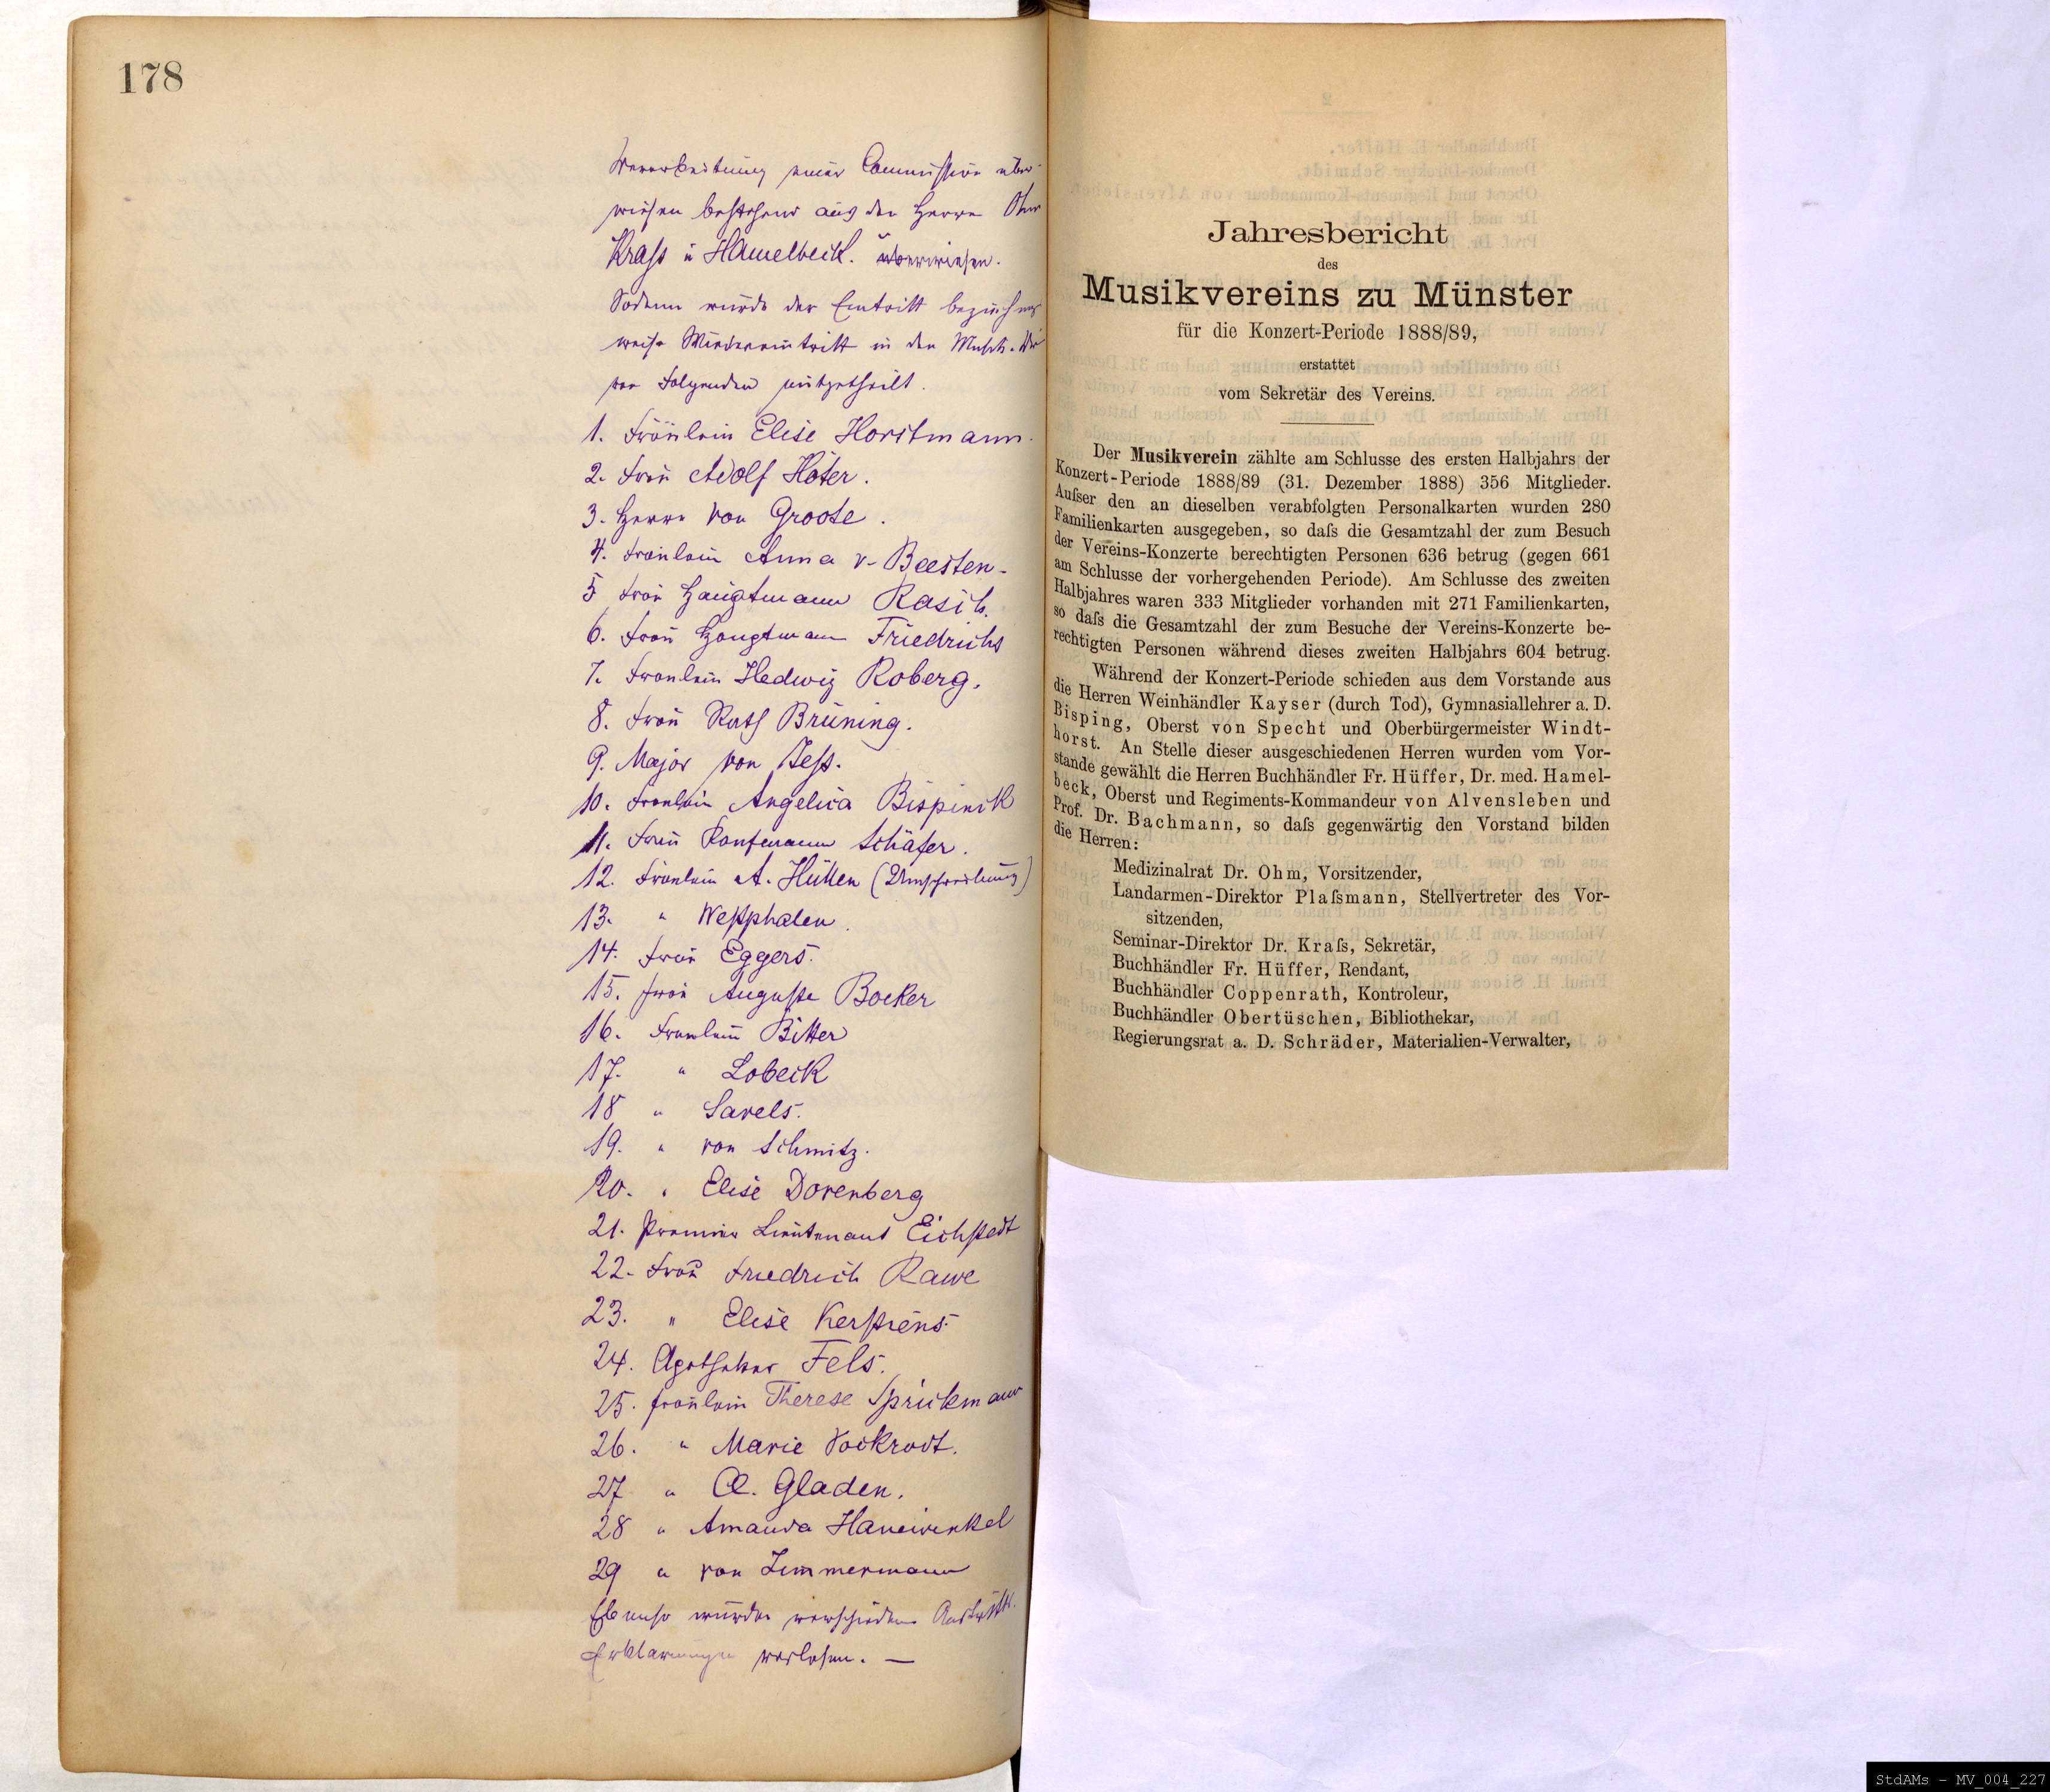 178
Vorarbeitung einer Commission über-
wiesen bestehend aus den Herren Ohm
Krass u Hamelbeck. überwiesen.
Sodann wurde der Eintritt beziehungs
weise Wiedereintritt in den Musik-
von Folgenden mitgetheilt.
1. Fräulein Elise Horstmann.
2. Frau Adolf Höter.
3. Herrn von Groote.
4. Fräulein Anna v. Beesten.
5 Frau Hauptmann Rasch.
6. Frau Hauptmann Friedrichs
7. Fräulein Hedwig Roberg.
8. Frau Rath Brüning.
9. Major von Hess.
10. Fräulein Angelica Bispinck
11. Frau Kaufmann Schäfer.
12. Fräulein A. Hüllen (Umschreibung)
13. " Westphalen.
14. Frau Eggers.
15. Frau Auguste Bocker
16. Fräulein Bitter
17. " Lobeck
18 " Savels.
19. " von Schmitz.
20. " Elise Dorenberg
21. Premier Lieutenant Eichstedt
22. Frau Friedrich Rawe
23. " Elise Kerstiens
24. Apotheker Fels.
25. Fräulein Therese Sprickmann
26. " Marie Vockrodt.
27 " Cl. Gladen.
28 " Amanda Hanewinkel
29 " von Zimmermann
Ebenso wurden verschiedene Austritts-
Erklärungen verlesen. —
Jahresbericht
des
Musikvereins zu Münster
für die Konzert-Periode 1888/89,
erstattet
vom Sekretär des Vereins.
Der Musikverein zählte am Schlusse des ersten Halbjahrs der
Konzert-Periode 1888/89 (31. Dezember 1888) 356 Mitglieder.
Aufser den an dieselben verabfolgten Personalkarten wurden 280
Familienkarten ausgegeben, so dafs die Gesamtzahl der zum Besuch
der Vereins-Konzerte berechtigten Personen 636 betrug (gegen 661
am Schlusse der vorhergehenden Periode). Am Schlusse des zweiten
Halbjahres waren 333 Mitglieder vorhanden mit 271 Familienkarten,
so dafs die Gesamtzahl der zum Besuche der Vereins-Konzerte be-
rechtigten Personen während dieses zweiten Halbjahrs 604 betrug.
Während der Konzert-Periode schieden aus dem Vorstande aus
die Herren Weinhändler Kayser (durch Tod), Gymnasiallehrer a. D.
Bisping, Oberst von Specht und Oberbürgermeister Windt-
horst. An Stelle dieser ausgeschiedenen Herren wurden vom Vor-
stande gewählt die Herren Buchhändler Fr. Hüffer, Dr. med. Hamel-
beck, Oberst und Regiments-Kommandeur von Alvensleben und
Prof. Dr. Bachmann, so dafs gegenwärtig den Vorstand bilden
die Herren:
Medizinalrat Dr. Ohm, Vorsitzender,
Landarmen-Direktor Plafsmann, Stellvertreter des Vor-
sitzenden,
Seminar-Direktor Dr. Krafs, Sekretär,
Buchhändler Fr. Hüffer, Rendant,
Buchhändler Coppenrath, Kontroleur,
Buchhändler Obertüschen, Bibliothekar,
Regierungsrat a. D. Schräder, Materialien-Verwalter,
StdAMs - MV_004_227